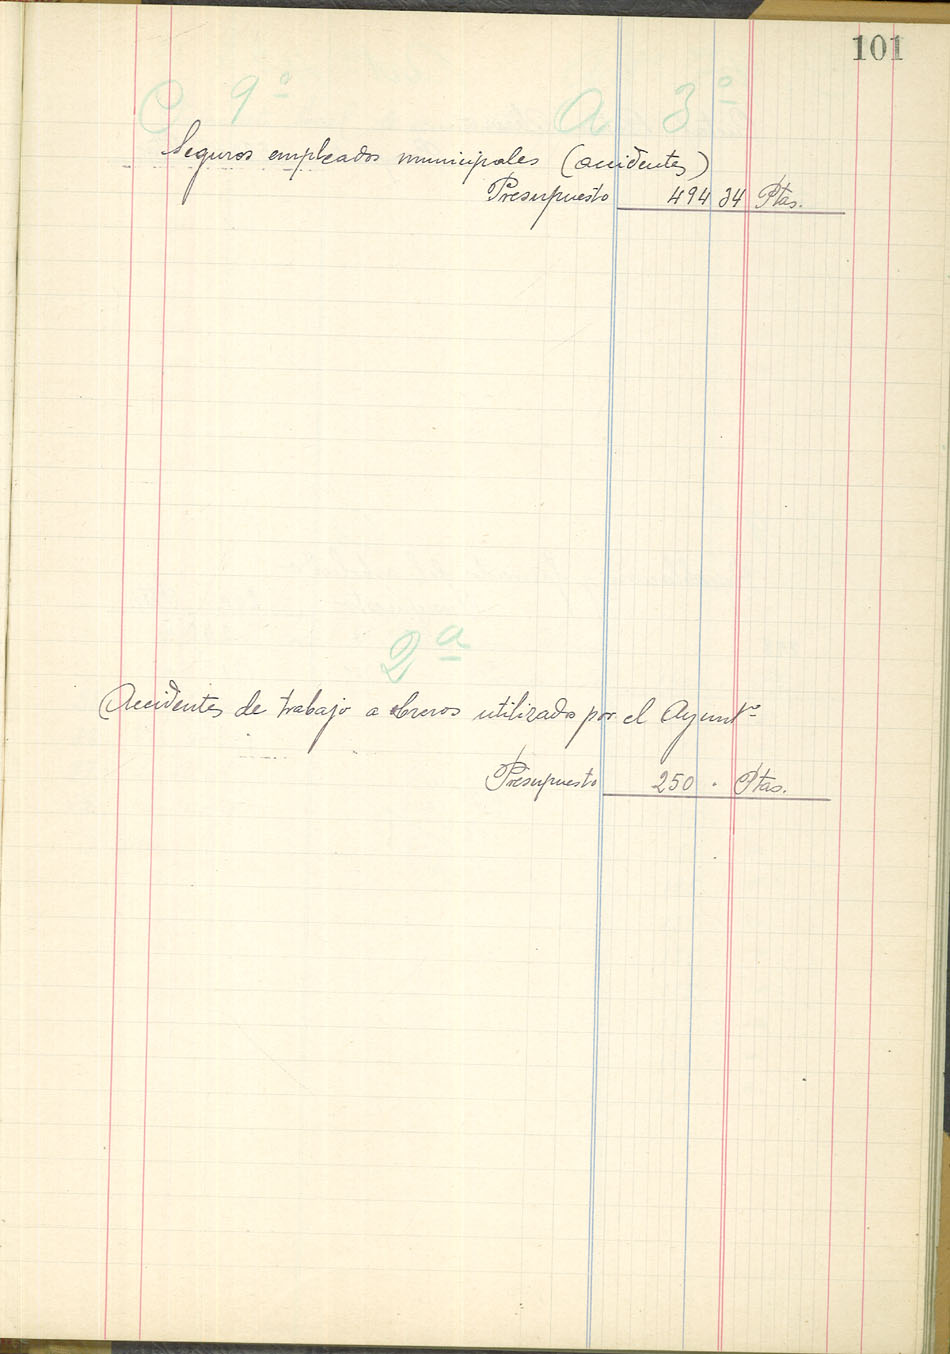 101
C 9º A 3º
Seguros empleados municipales (accidentes)
Presupuesto 494 34 Ptas.
2ª
Accidentes de trabajo a obreros utilizados por el Ayuntº
Presupuesto 250 . Ptas.